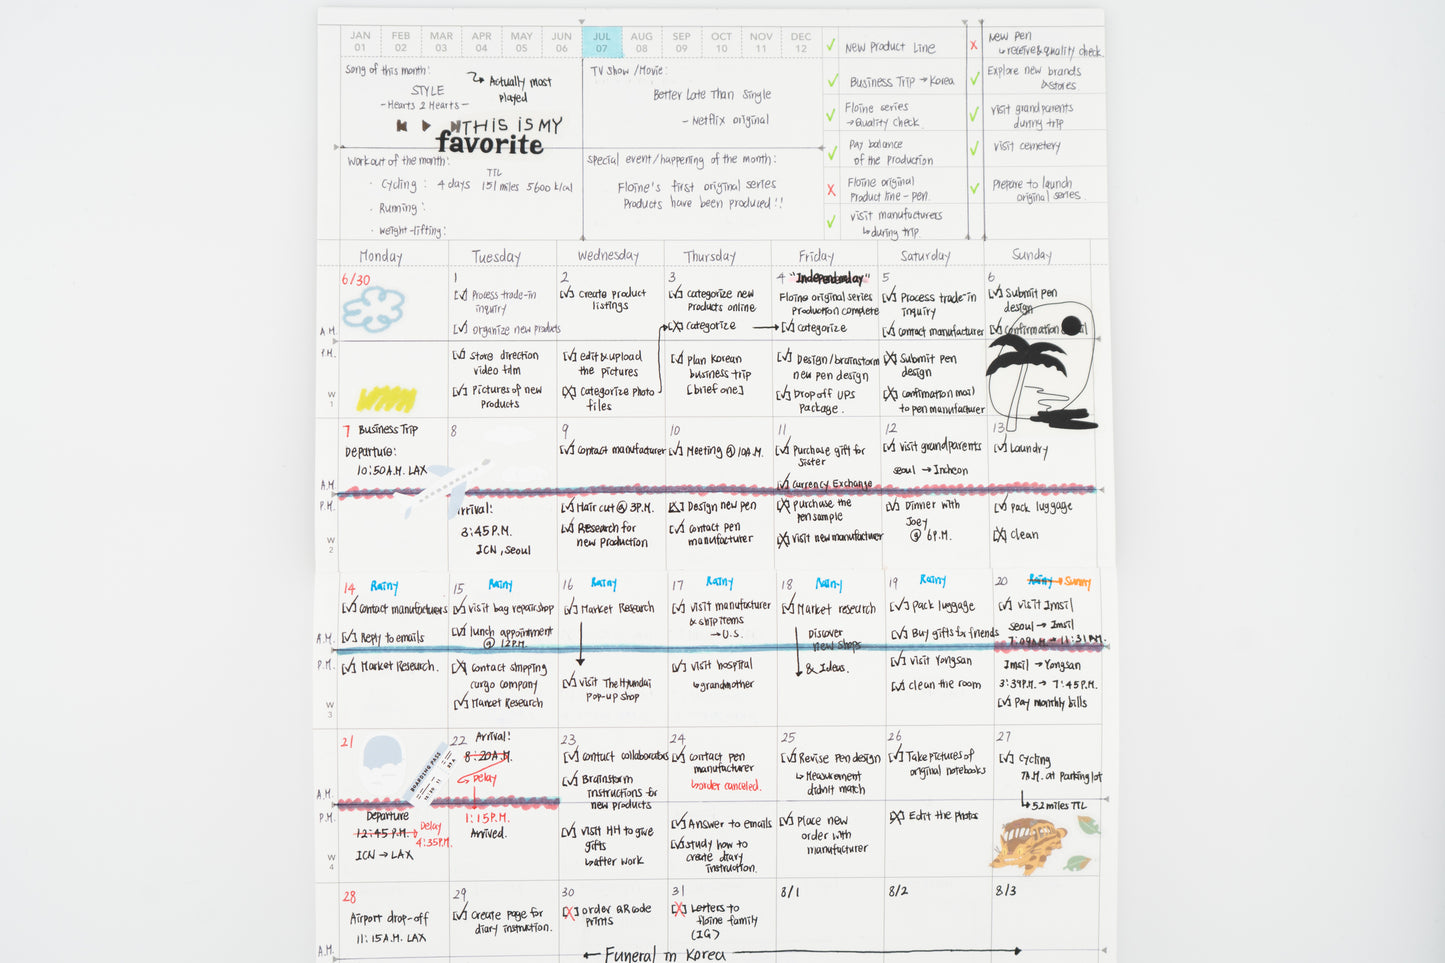 JAN FEB MAR APR MAY JUN JUL AUG SEP OCT NOV DEC
01 02 03 04 05 06 07 08 09 10 11 12
Song of this month:
Actually most
played
STYLE
-Hearts 2 Hearts-
THIS IS MY
favorite
TV Show/Movie:
Better Late Than Single
- Netflix original
Workout of the month:
TTL
· Cycling: 4 days 151 miles 5600 kcal
· Running:
· Weight-lifting:
Special event/happening of the month:
Floine's first original series
Products have been produced!!
New Product Line
Business Trip → Korea
Floine series
→ Quality check
Pay balance
of the Production
Floine original
Product line - pen.
visit manufacturers
↳ during trip.
New Pen
↳ receive & quality check.
Explore new brands
& stores.
visit grandparents
during trip
visit cemetery
Prepare to launch
original series.
Monday Tuesday Wednesday Thursday Friday Saturday Sunday
6/30
A.M.
P.M.
W
1
1
Process trade-in
inquiry
organize new products
Store direction
video film
Pictures of new
Products
2
Create product
listings
edit & upload
the pictures
Categorize Photo
files
3
categorize new
Products online
Categorize
Plan Korean
business trip
[brief one]
4 "Independenday"
Floine original series
Production complete
Categorize
Design/brainstorm
new pen design
Drop off UPS
Package.
5
Process trade-in
inquiry
Contact manufacturer
Submit Pen
design
Confirmation mail
to pen manufacturer
6
Submit pen
design
Confirmation
7 Business Trip
Departure:
10:50 A.M. LAX
A.M.
P.M.
W
2
8
Arrival!
3:45 P.M.
ICN, Seoul
9
Contact manufacturer
Hair cut @ 3P.M.
Research for
new production
10
Meeting @ 10A.M.
Design new pen
Contact pen
manufacturer
11
Purchase gift for
sister
Currency Exchange
Purchase the
pen sample
Visit new manufacturer
12
visit grandparents
Seoul → Incheon
Dinner with
Joey
@ 6P.M.
13
Laundry
Pack luggage
Clean
14 Rainy
Contact manufacturers
Reply to emails
Market Research.
A.M.
P.M.
W
3
15 Rainy
visit bag repair shop
lunch appointment
@ 12P.M.
Contact shipping
cargo company
Market Research
16 Rainy
Market Research
visit The Hyundai
Pop-up shop
17 Rainy
visit manufacturer
& ship items
→ U.S.
visit hospital
↳ grandmother
18 Rainy
Market research
Discover
new shops
& Ideas.
19 Rainy
Pack luggage
Buy gifts for friends
visit Yongsan
clean the room
20 Rainy → Sunny
visit Imsil
Seoul → Imsil
7:09A.M. → 11:31 A.M.
Imsil → Yongsan
3:39P.M. → 7:45P.M.
Pay monthly bills
21
BOARDING PASS
A.M.
P.M.
W
4
Departure
12:45 P.M. → Delay
4:35P.M.
ICN → LAX
22 Arrival!
8:20A.M.
Delay
1:15P.M.
Arrived.
23
Contact collaborators
Brainstorm
instructions for
new products
Visit HH to give
gifts
↳ after work
24
Contact pen
manufacturer
↳ order canceled.
Answer to emails
Study how to
create diary
instruction.
25
Revise pen design
↳ Measurement
didn't match
Place new
order with
manufacturer
26
Take pictures of
original notebooks
Edit the photos
27
Cycling
7A.M. at Parking lot
↳ 52 miles TTL
28
Airport drop-off
11:15 A.M. LAX
A.M.
29
Create page for
diary instruction.
30
order QR code
Prints
31
Letters to
floine family
(IG)
8/1
8/2
8/3
← Funeral in Korea →